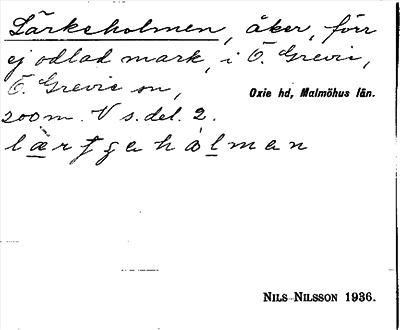 Lärkeholmen, åker, förr
ej odlad mark, i Ö. Grevie,
Ö. Grevie sn,
Oxie hd, Malmöhus län.
200 m. V s. del. 2.
NILS NILSSON 1936.